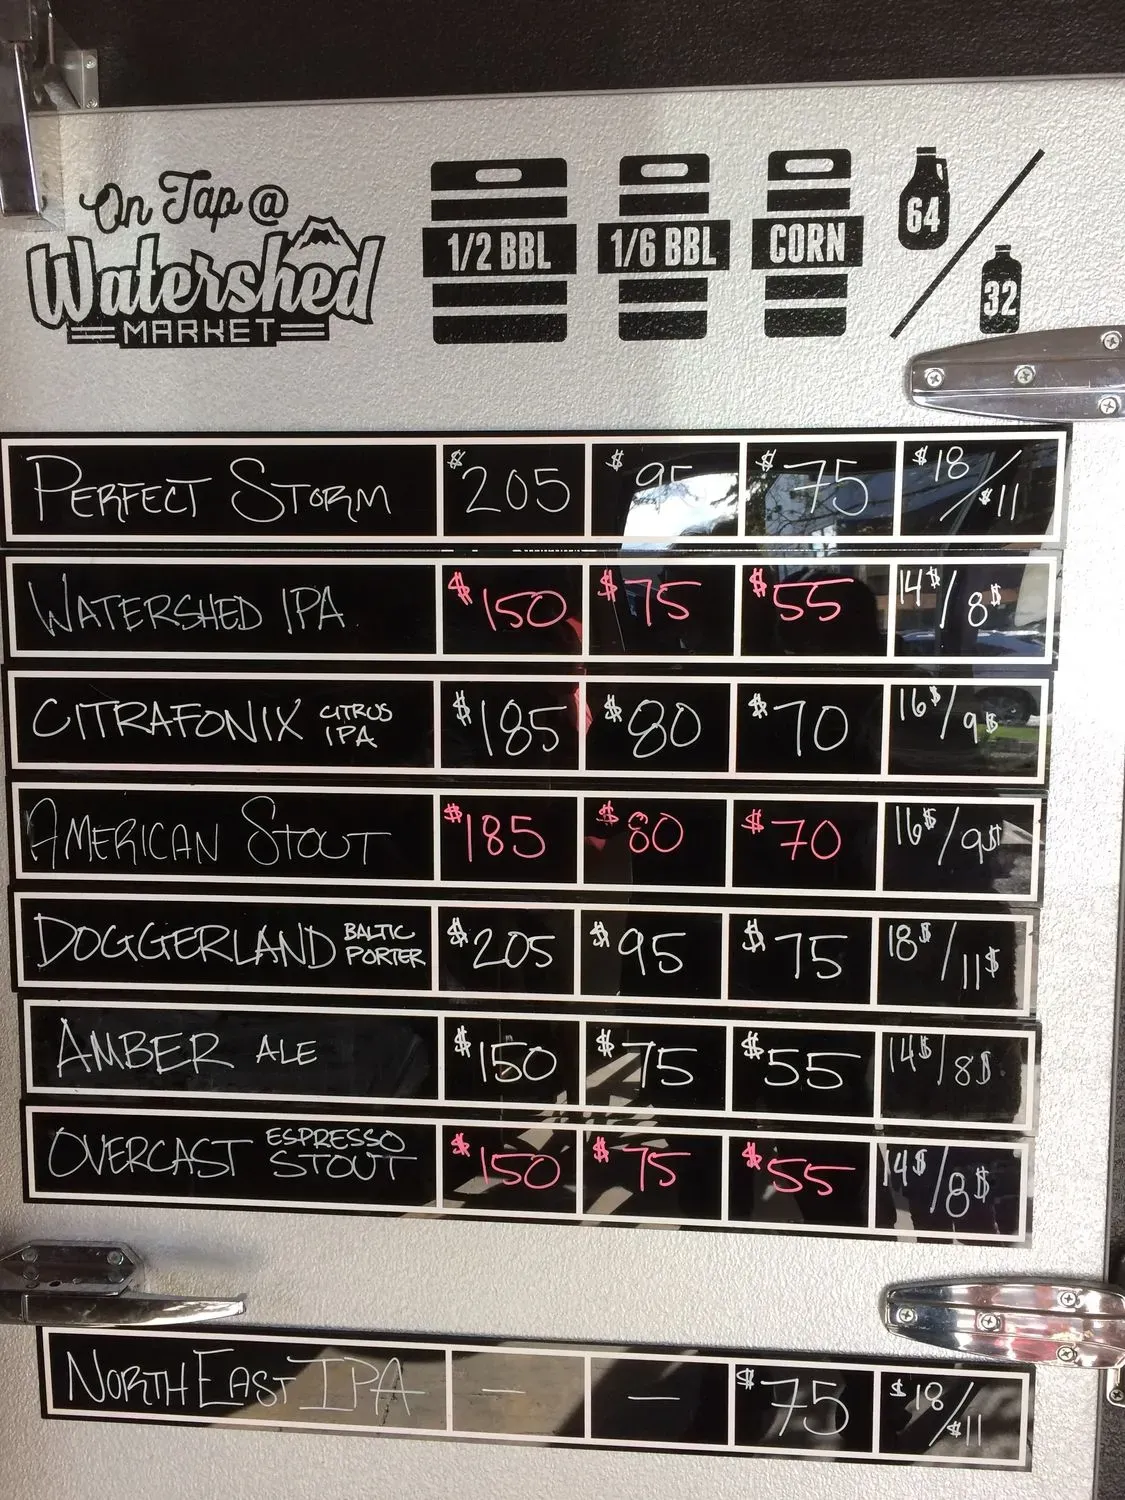 On Tap @
Watershed
MARKET
1/2 BBL
1/6 BBL
CORN
64
32
PERFECT STORM $205 $95 $75 $18/$11
WATERSHED IPA $150 $75 $55 14$/8$
CITRAFONIX CITRUS IPA $185 $80 $70 16$/9$
AMERICAN STOUT $185 $80 $70 16$/9$
DOGGERLAND BALTIC PORTER $205 $95 $75 18$/11$
AMBER ALE $150 $75 $55 14$/8$
OVERCAST ESPRESSO STOUT $150 $75 $55 14$/8$
NORTHEAST IPA — — $75 $18/$11